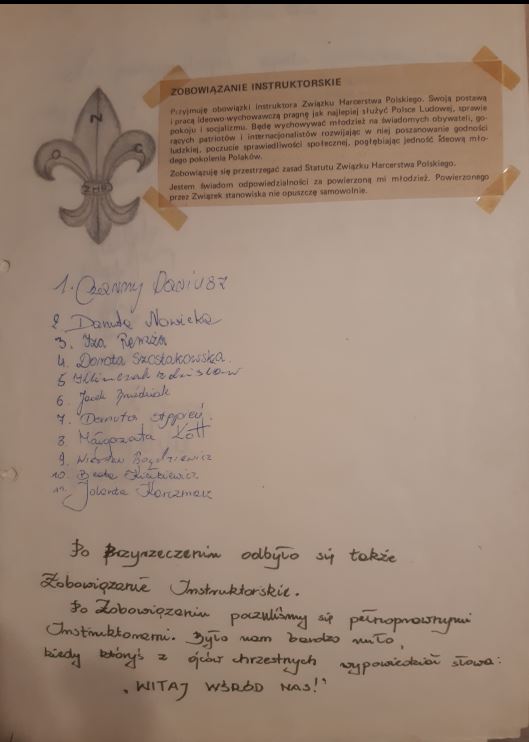 O N C
ZHP
ZOBOWIĄZANIE INSTRUKTORSKIE
Przyjmuję obowiązki instruktora Związku Harcerstwa Polskiego. Swoją postawą
i pracą ideowo-wychowawczą pragnę jak najlepiej służyć Polsce Ludowej, sprawie
pokoju i socjalizmu. Będę wychowywać młodzież na świadomych obywateli, go-
rących patriotów i internacjonalistów rozwijając w niej poszanowanie godności
ludzkiej, poczucie sprawiedliwości społecznej, pogłębiając jedność ideową mło-
dego pokolenia Polaków.
Zobowiązuję się przestrzegać zasad Statutu Związku Harcerstwa Polskiego.
Jestem świadom odpowiedzialności za powierzoną mi młodzież. Powierzonego
przez Związek stanowiska nie opuszczę samowolnie.
1. Czarny Dariusz
2. Danuta Nowicka
3. Iza
4. Dorota Szostakowska.
5 Zdzisław
6. Jacek
7. Danuta
8. Małgorzata Kott
9. Wiesław
10. Beata
11. Jolanta Karczmarz
Po Przyrzeczeniu odbyło się także
Zobowiązanie Instruktorskie.
Po Zobowiązaniu poczuliśmy się pełnoprawnymi
Instruktorami. Było nam bardzo miło,
kiedy któryś z ojców chrzestnych wypowiedział słowa:
„WITAJ WŚRÓD NAS!”